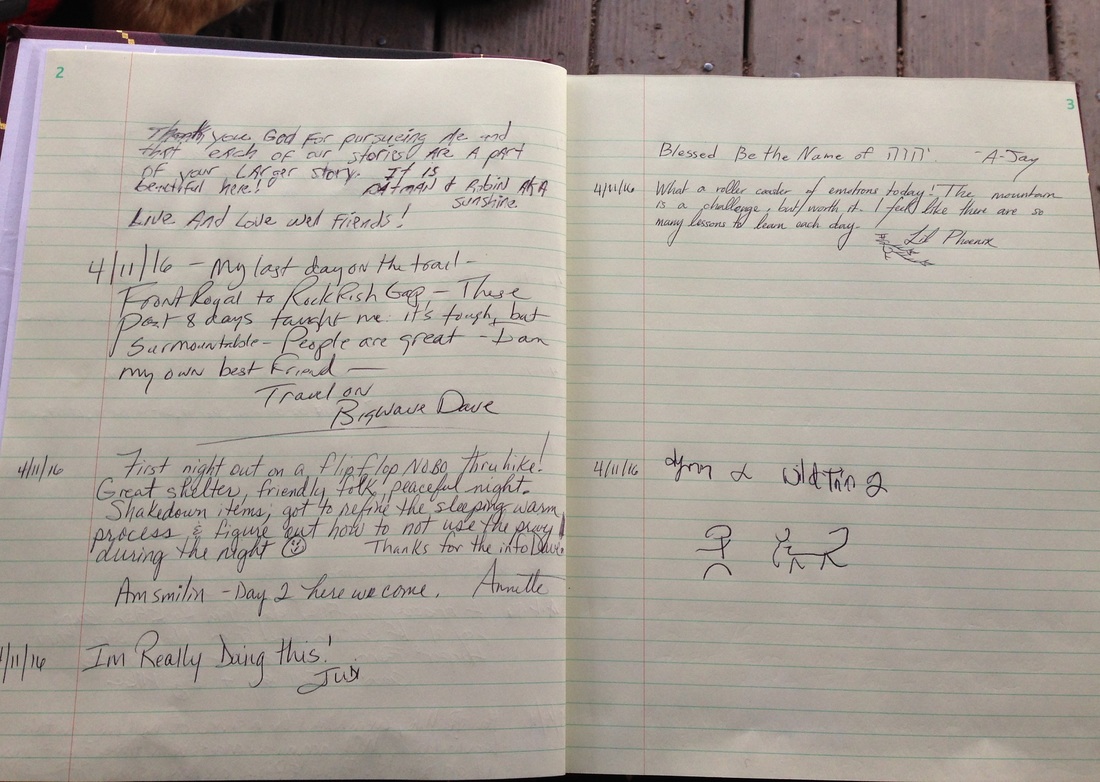 2
Thank you God For pursueing Me and
that each of our stories Are A part
of your LArger story. It is
beautiful here!
& Robin AKA
sunshine
Live And Love well Friends!
4/11/16 – My last day on the trail –
Front Royal to RockFish Gap – These
Past 8 days taught me it's tough, but
Surmountable – People are great – I am
my own best Friend —
Travel on
BigWave Dave
4/11/16 First night out on a flipflop NoBo thruhike!
Great shelter, friendly folk, peaceful night.
Shakedown items; got to refine the sleeping warm
process & figure out how to not use the privy
during the night Thanks for the info Dave.
Amsmilin – Day 2 here we come. Annette
4/11/16 Im Really Doing this!
3
Blessed Be the Name of יהוה. -A-Jay
4/11/16 What a roller coaster of emotions today! The mountain
is a challenge, but worth it. I feel like there are so
many lessons to learn each day. Lil Phoenix
4/11/16